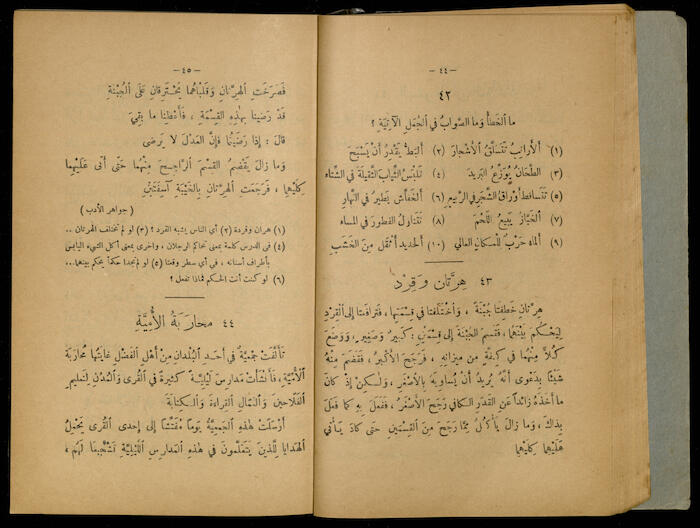 — ٤٤ —
٤٢
ما الخطأ وما الصواب في الجمل الآتية ؟
(١) ألأرانب تتسلّق الأشجار (٢) ألبطّ يقدر أن يسبح
(٣) الطحّان يوزّع البريد (٤) تلبس الثياب الثقيلة في الشتاء
(٥) تتساقط أوراق الشجر في الربيع (٦) ألخفّاش يطير في النهار
(٧) ألخبّاز يبيع اللحم (٨) نتناول الفطور في المساء
(٩) ألماء يجري للمكان العالي (١٠) ألحديد أثقل من الخشب
٤٣ هِرّتان وقِرد
هرّتان خطفتا جُبنة ، وآختلفتا في قسمتها ، فترافعتا إلى القِرد
ليحكم بينهما ، فقسم الجبنة إلى قسمين : كبير وصغير ، ووضع
كلًّا منهما في كفّة من ميزانه ، فرجح الأكبر ، فقضم منه
شيئًا بدعوى أنّه يريد أن يساويه بالأصغر ، ولكن إذ كان
ما أخذه زائدًا عن القدر الكافي رجح الأصغر ، ففعل به كما فعل
بذاك ، وما زال يأكل ممّا رجح من القسمين حتى كاد يأتي
عليهما كليهما
— ٤٥ —
فصرخت الهرّتان وقلباهما يحترقان على الجبنة
قد رضينا بهذه القسمة ، فأعطنا ما بقي
قال : إذا رضيتما فإنّ العدل لا يرضى
وما زال يقضم القسم الراجح منهما حتّى أتى عليهما
كليهما ، فرجعت الهرّتان بالخيبة آسفتين
( جواهر الأدب )
(١) هران وقردة (٢) أي الناس يشبه القرد ؟ (٣) لو لم تختلف الهرتان ..
(٤) في الدرس كلمة بمعنى تحاكم الرجلان ، واخرى بمعنى أكل الشيء اليابس
بأطراف أسنانه ، في أي سطر وقعتا (٥) لو لم تجدا حكمًا يحكم بينهما ...
(٦) لو كنت أنت الحكم فماذا تفعل ؟
٤٤ محاربة الأميّة
تألّفت جمعيّة في أحد البلدان من أهل الفضل غايتها محاربة
الأميّة ، فأنشأت مدارس ليليّة كثيرة في القرى والمدن لتعليم
الفلاحين والعمّال القراءة والكتابة
أرسلت هذه الجمعيّة يومًا مفتّشًا إلى إحدى القرى يحمل
الهدايا للذين يتعلّمون في هذه المدارس الليليّة تشجيعًا لهم ،